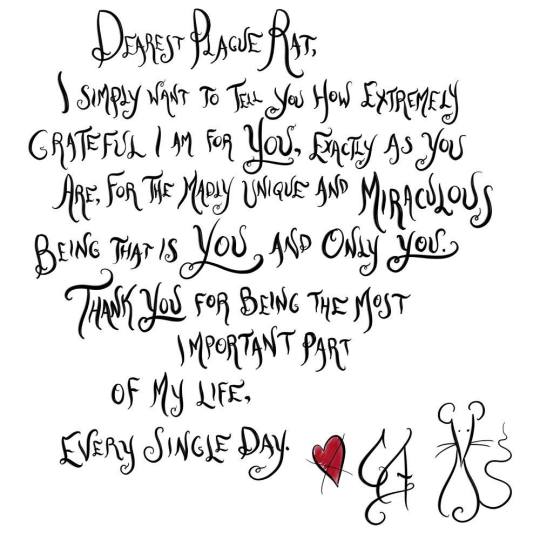 Dearest Plague Rat,
I simply want to tell you how extremely
grateful I am for you, exactly as you
are, for the madly unique and miraculous
being that is you and only you.
Thank you for being the most
important part
of my life,
every single day.
EA